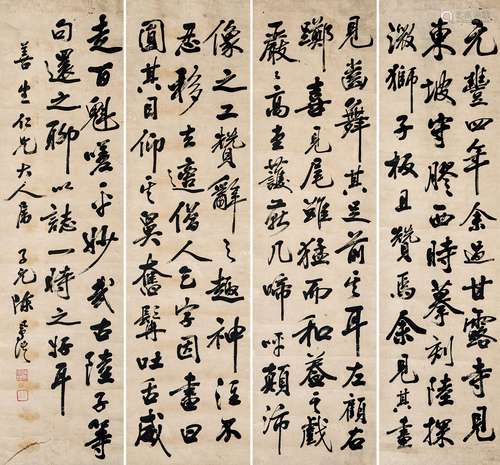 元豐四年余過甘露寺見
東坡守膠西時摹刻陸探
微獅子板且贊焉余見其畫
見齒舞其足前其耳左顧右
擲喜見尾雖猛而和蓋其戲
嚴〻高堂護燕几啼呼顛沛
像之工贊辭之趣神注不
忍移去適僧人乞字因畫曰
圓其目仰其鼻奮髯吐舌威
走百魁嗟乎妙哉古陸子等
句還之聊以誌一時之好耳
善生仁兄大人屬 陳